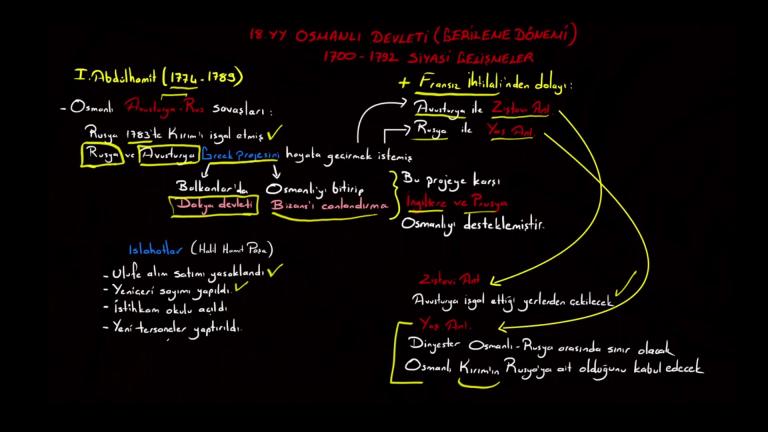 18 YY OSMANLI DEVLETİ (GERİLEME DÖNEMİ)
1700 - 1792 SİYASİ GELİŞMELER
I. Abdülhamit (1774 - 1789)
- Osmanlı Avusturya - Rus savaşları:
Rusya 1783'te Kırım'ı işgal etmiş
Rusya ve Avusturya Greek projesini hayata geçirmek istemiş
Balkanlar'da
Dakya devleti
Osmanlı'yı bitirip
Bizans'ı canlandırma
Islahatlar (Halil Hamit Paşa)
- Ulufe alım satımı yasaklandı
- Yeniçeri sayımı yapıldı.
- İstihkam okulu açıldı
- Yeni tersaneler yaptırıldı.
+ Fransız İhtilali'nden dolayı:
Avusturya ile Ziştovi Ant
Rusya ile Yaş Ant.
Bu projeye karşı
İngiltere ve Prusya
Osmanlıyı desteklemiştir.
Ziştovi Ant
Avusturya işgal ettiği yerlerden çekilecek
Yaş Ant.
Dinyester Osmanlı - Rusya arasında sınır olacak
Osmanlı, Kırım'ın Rusya'ya ait olduğunu kabul edecek